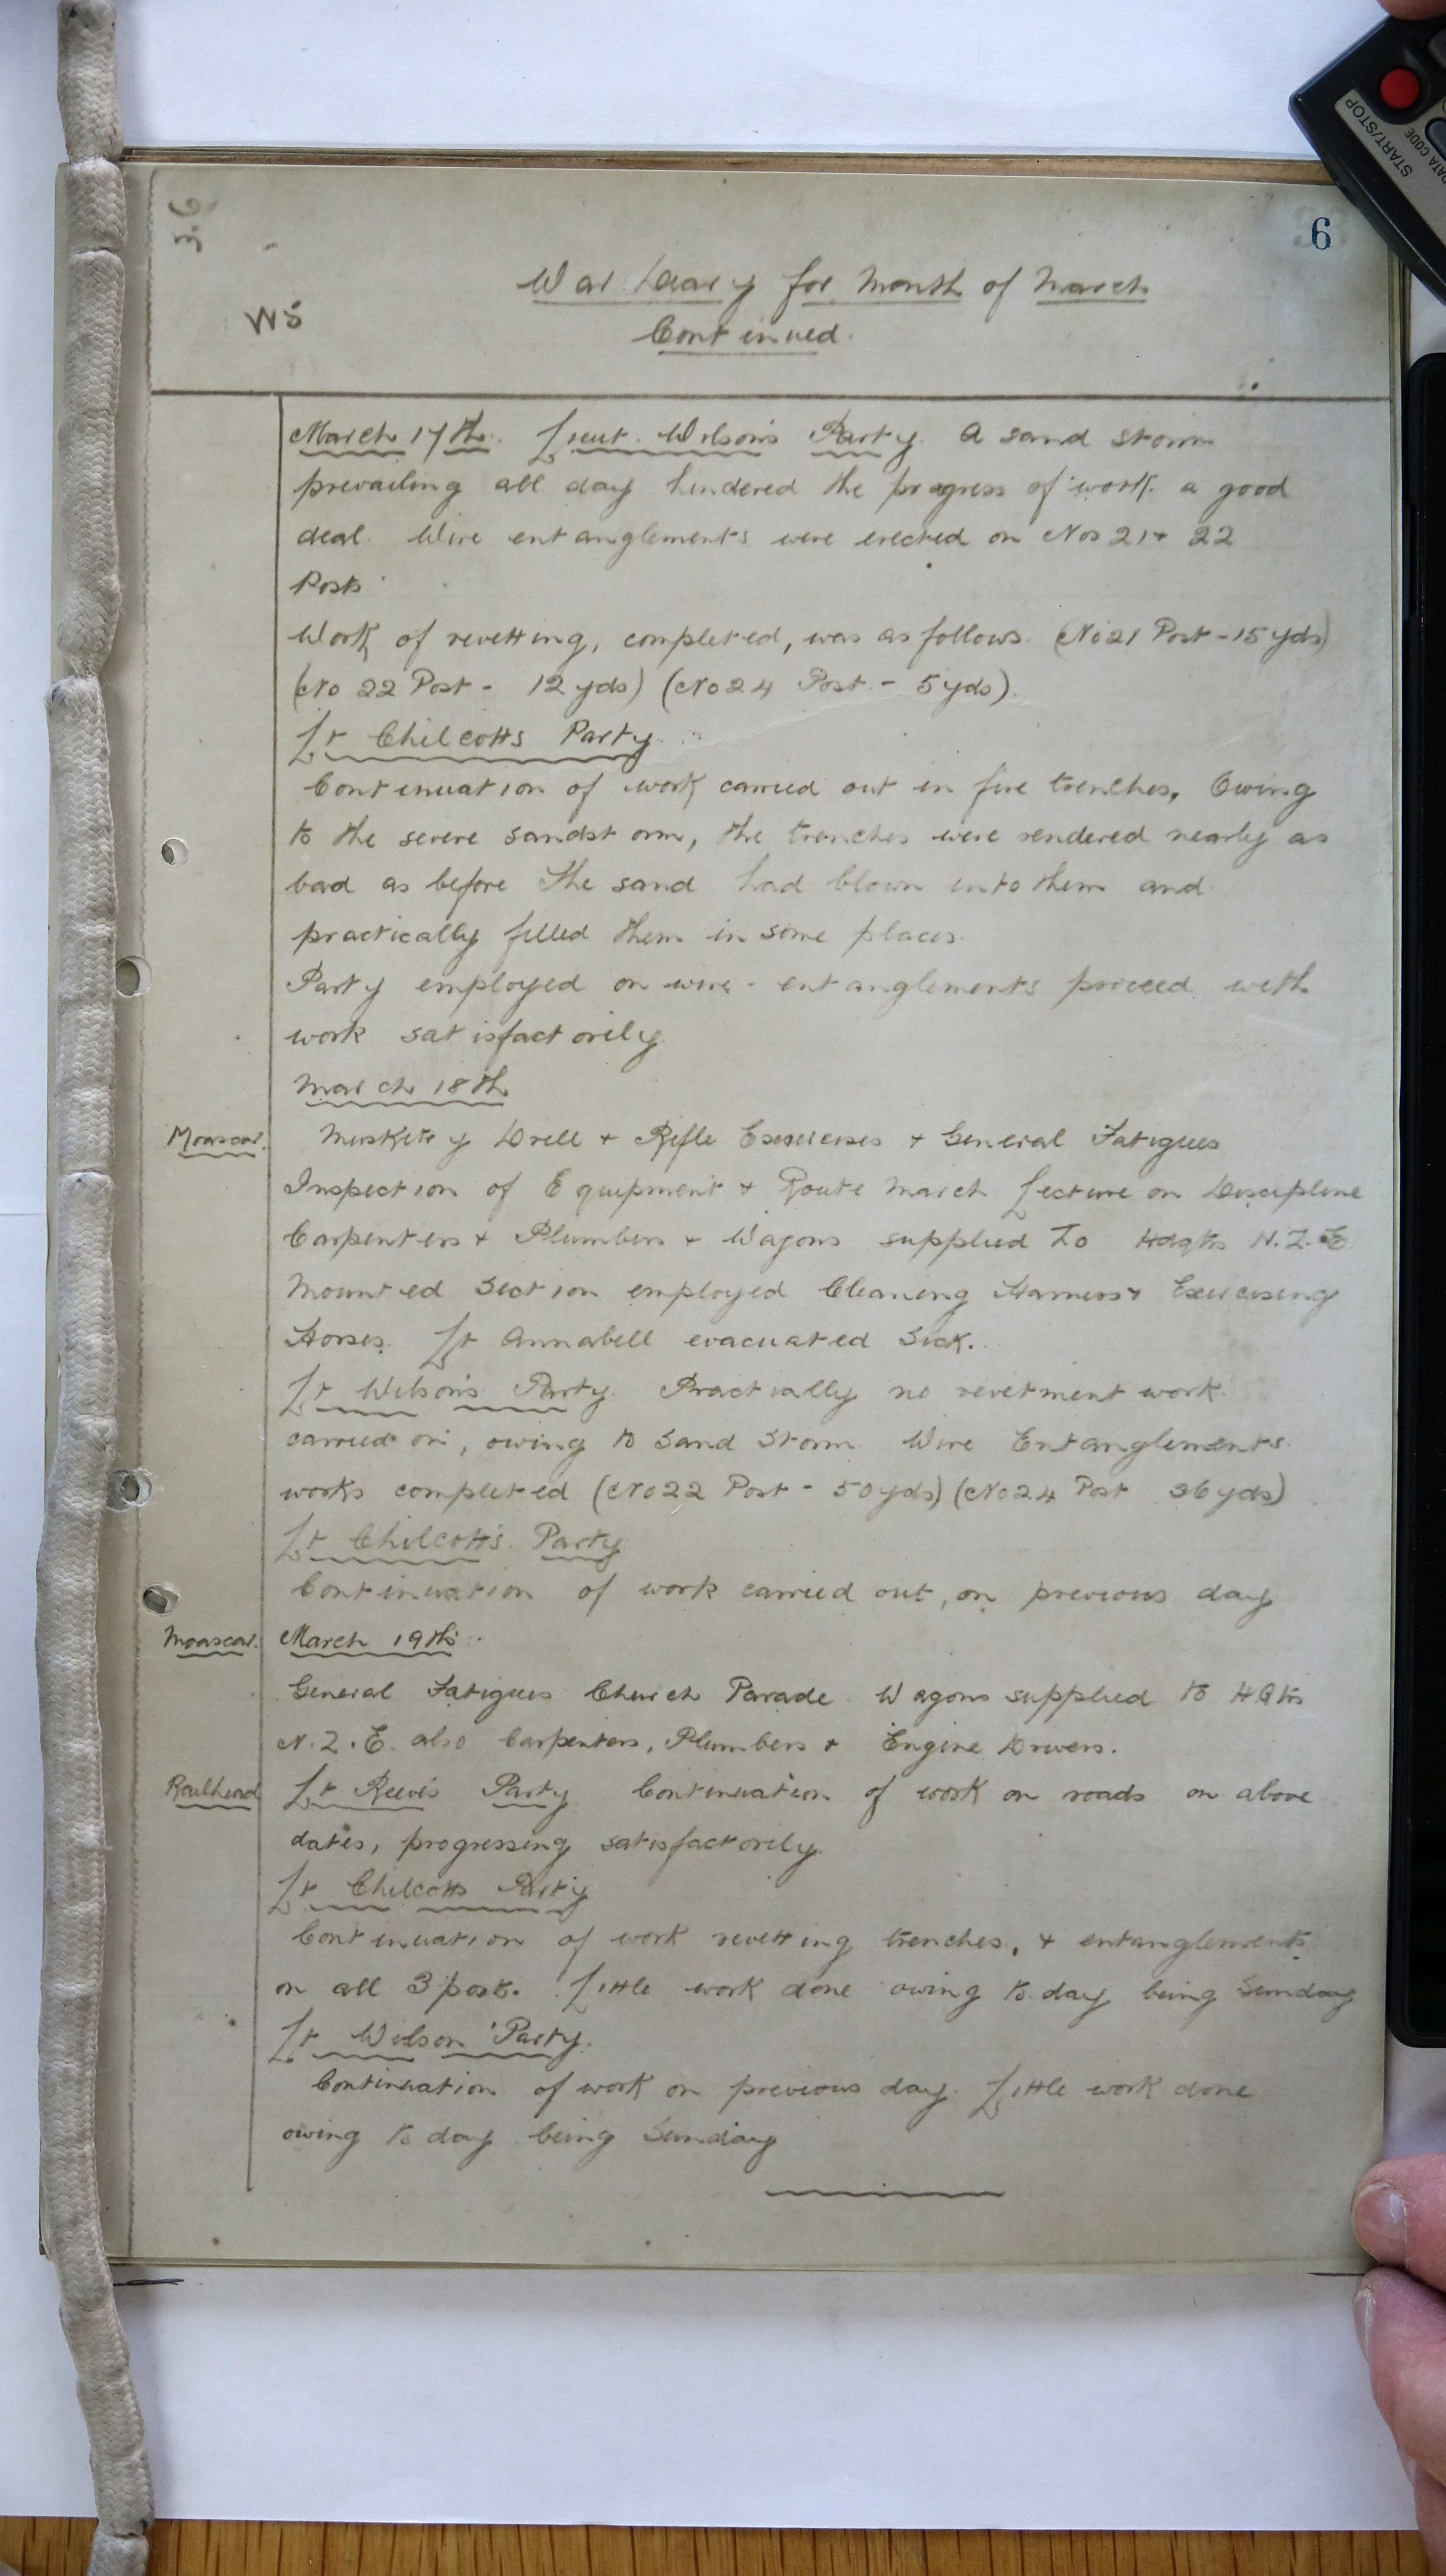 36
6
W5
War Diary for Month of March
Continued.
March 17th. Lieut. Wilson's Party. A sand storm
prevailing all day hindered the progress of work a good
deal. Wire entanglements were erected on Nos 21 + 22
Posts
Work of revetting, completed, was as follows. (No 21 Post - 15 yds)
(No 22 Post - 12 yds) (No 24 Post - 5 yds).
Lt Chilcotts Party.
Continuation of work carried out in fire trenches. Owing
to the severe sandstorm, the trenches were rendered nearly as
bad as before the sand had blown into them and
practically filled them in some places.
Party employed on wire-entanglements proceed with
work satisfactorily
March 18th
Moascar. Musketry Drill + Rifle Exercises + General Fatigues
Inspection of Equipment + Route March Lecture on Discipline
Carpenters + Plumbers + Wagons supplied To Hdqtrs N.Z.E
Mounted Section employed Cleaning Harness + Exercising
Horses. Lt Annabell evacuated Sick.
Lt Wilson's Party. Practically no revetment work
carried on, owing to Sand Storm Wire Entanglements
works completed (No 22 Post - 50 yds) (No 24 Post 36 yds)
Lt Chilcott's Party
Continuation of work carried out, on previous day
Moascar. March 19th.
General Fatigues Church Parade Wagons supplied to HQtrs
N.Z.E. also Carpenters, Plumbers + Engine Drivers.
Railhead Lt Reeves Party Continuation of work on roads on above
dates, progressing satisfactorily.
Lt Chilcotts Party
Continuation of work revetting trenches, + entanglements
on all 3 posts. Little work done owing to day being Sunday
Lt Wilson' Party.
Continuation of work on previous day. Little work done
owing to day being Sunday
START/STOP
DATA CODE